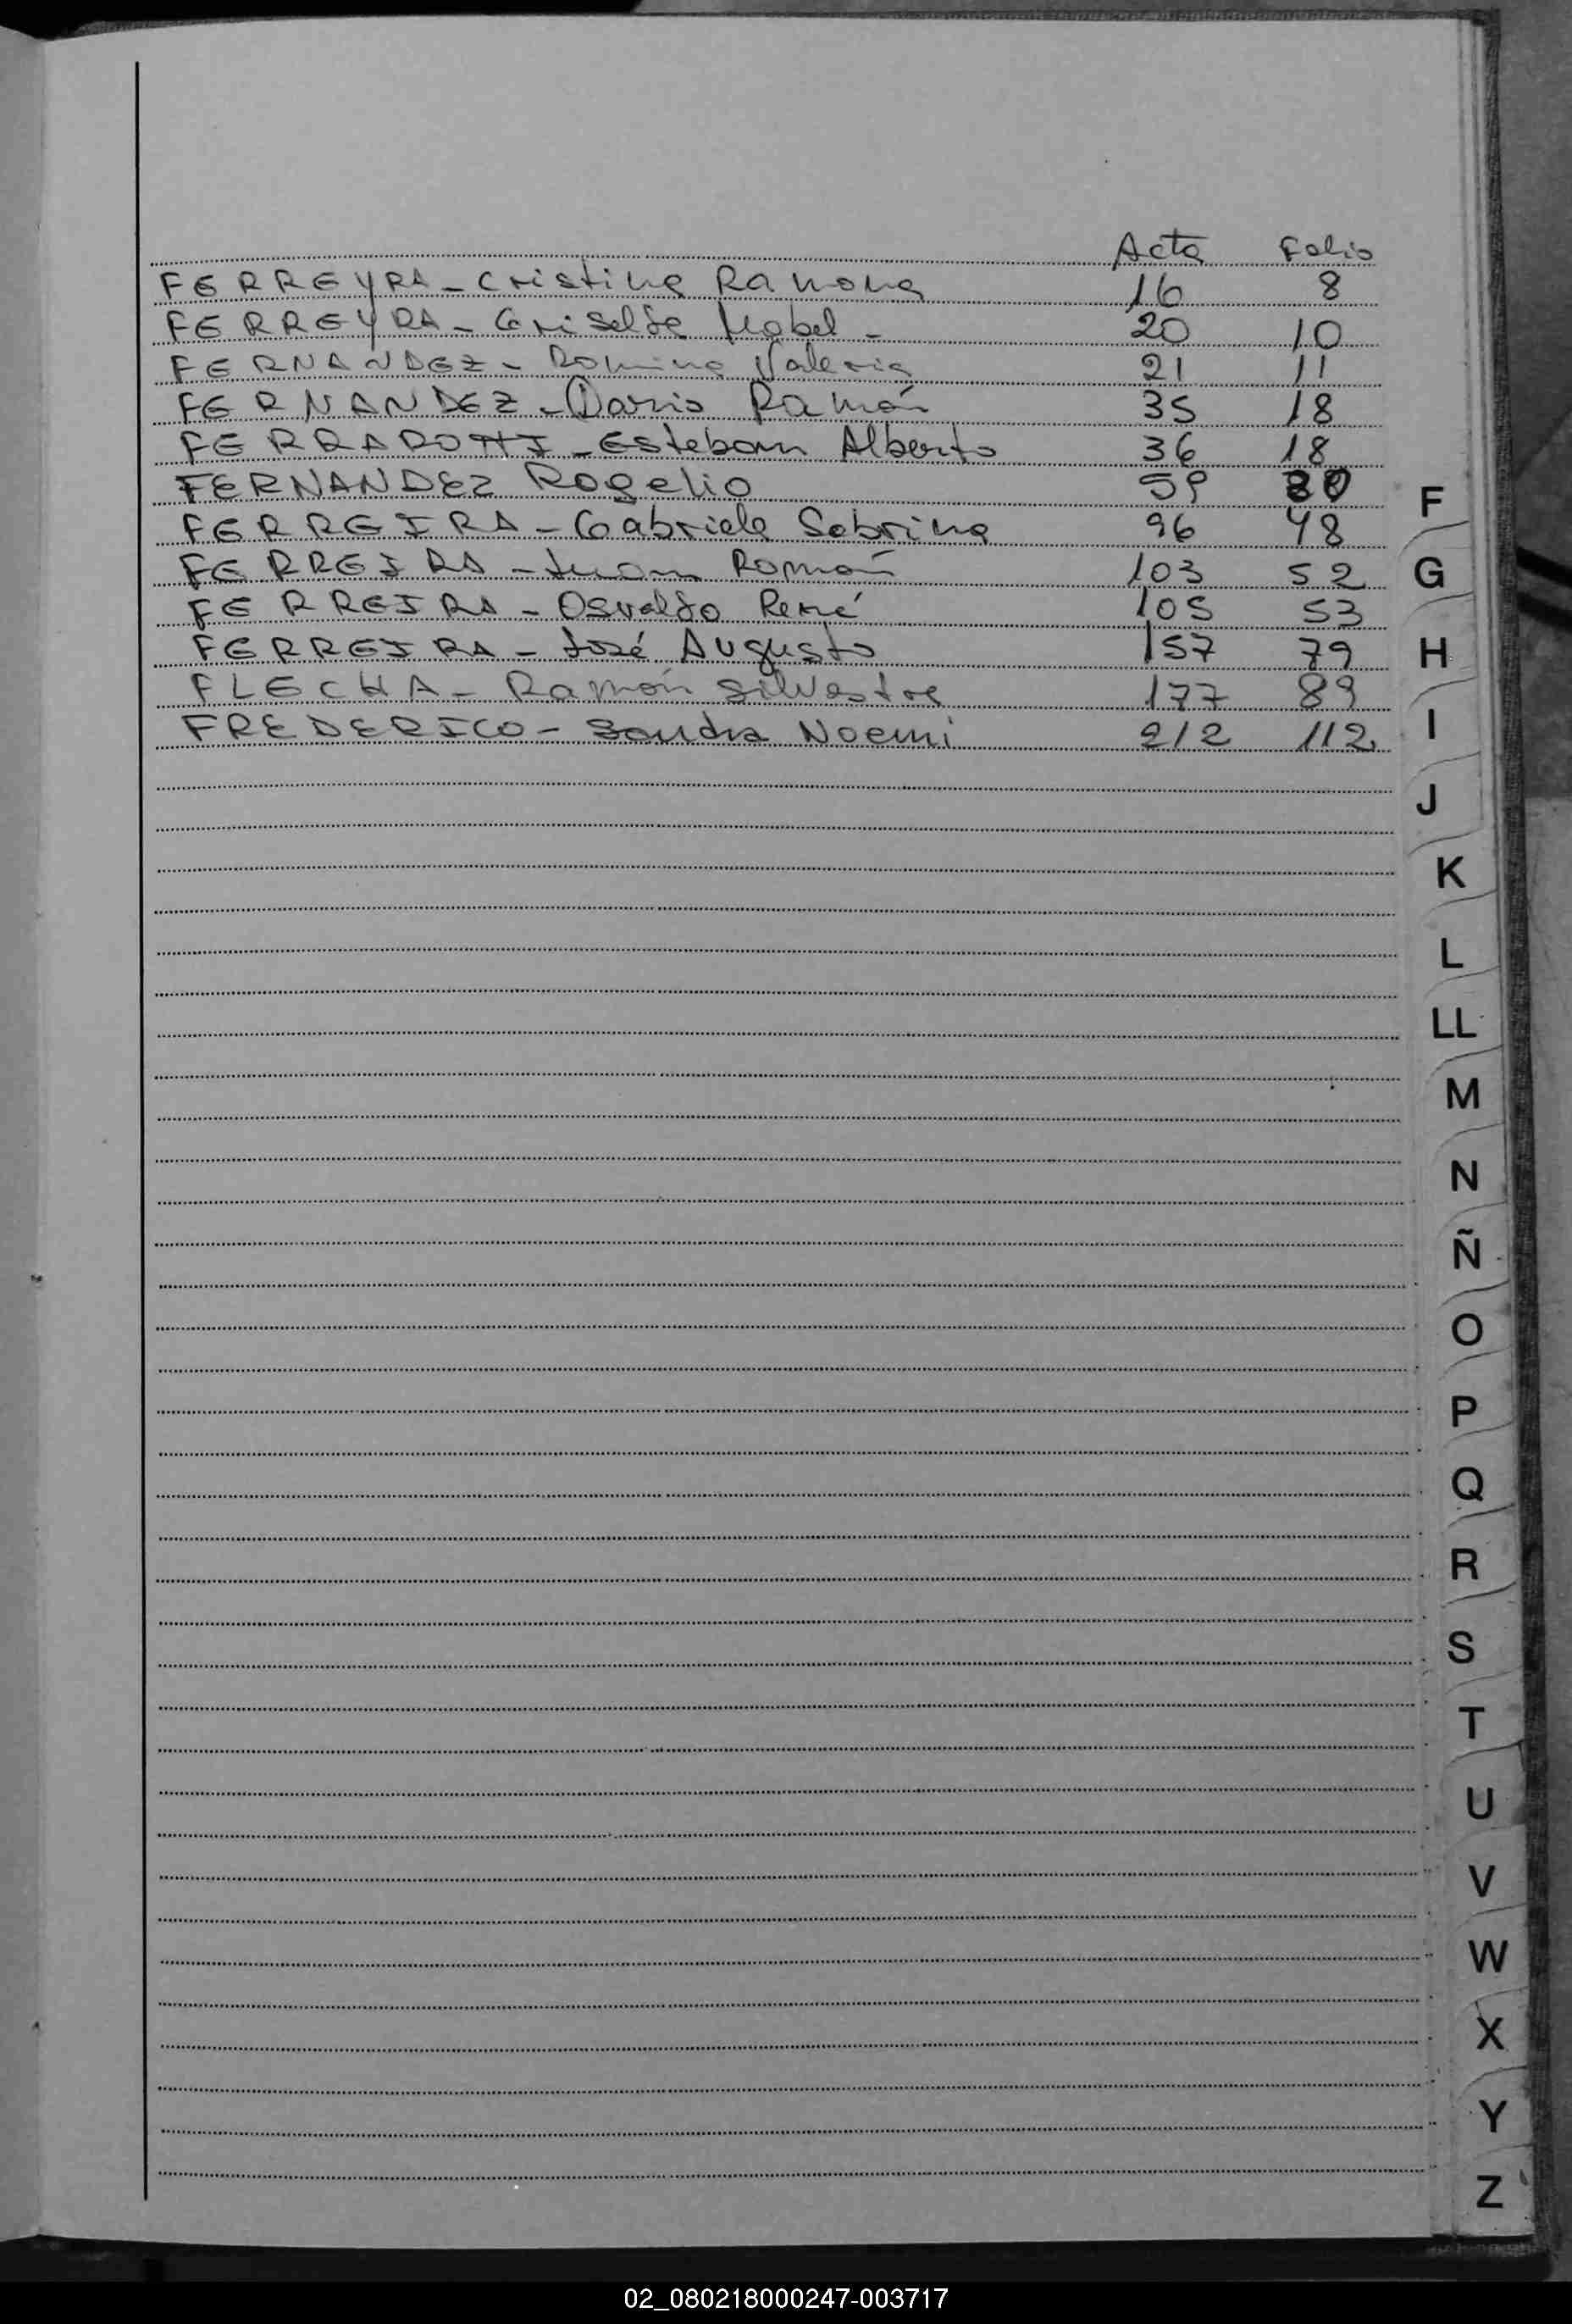 Acta Folio
FERREYRA - Cristina Ramona 16 8
FERREYRA - Griselda Mabel - 20 10
FERNANDEZ - Romina Valeria 21 11
FERNANDEZ - Dario Ramón 35 18
FERRAROTTI - Esteban Alberto 36 18
FERNANDEZ Rogelio 59 30
FERREIRA - Gabriela Sabrina 96 48
FERREIRA - Juan Román 103 52
FERREIRA - Osvaldo René 105 53
FERREIRA - José Augusto 157 79
FLECHA - Ramón Silvestre 177 89
FREDERICO - Sandra Noemi 212 112
F
G
H
I
J
K
L
LL
M
N
Ñ
O
P
Q
R
S
T
U
V
W
X
Y
Z
02_080218000247-003717